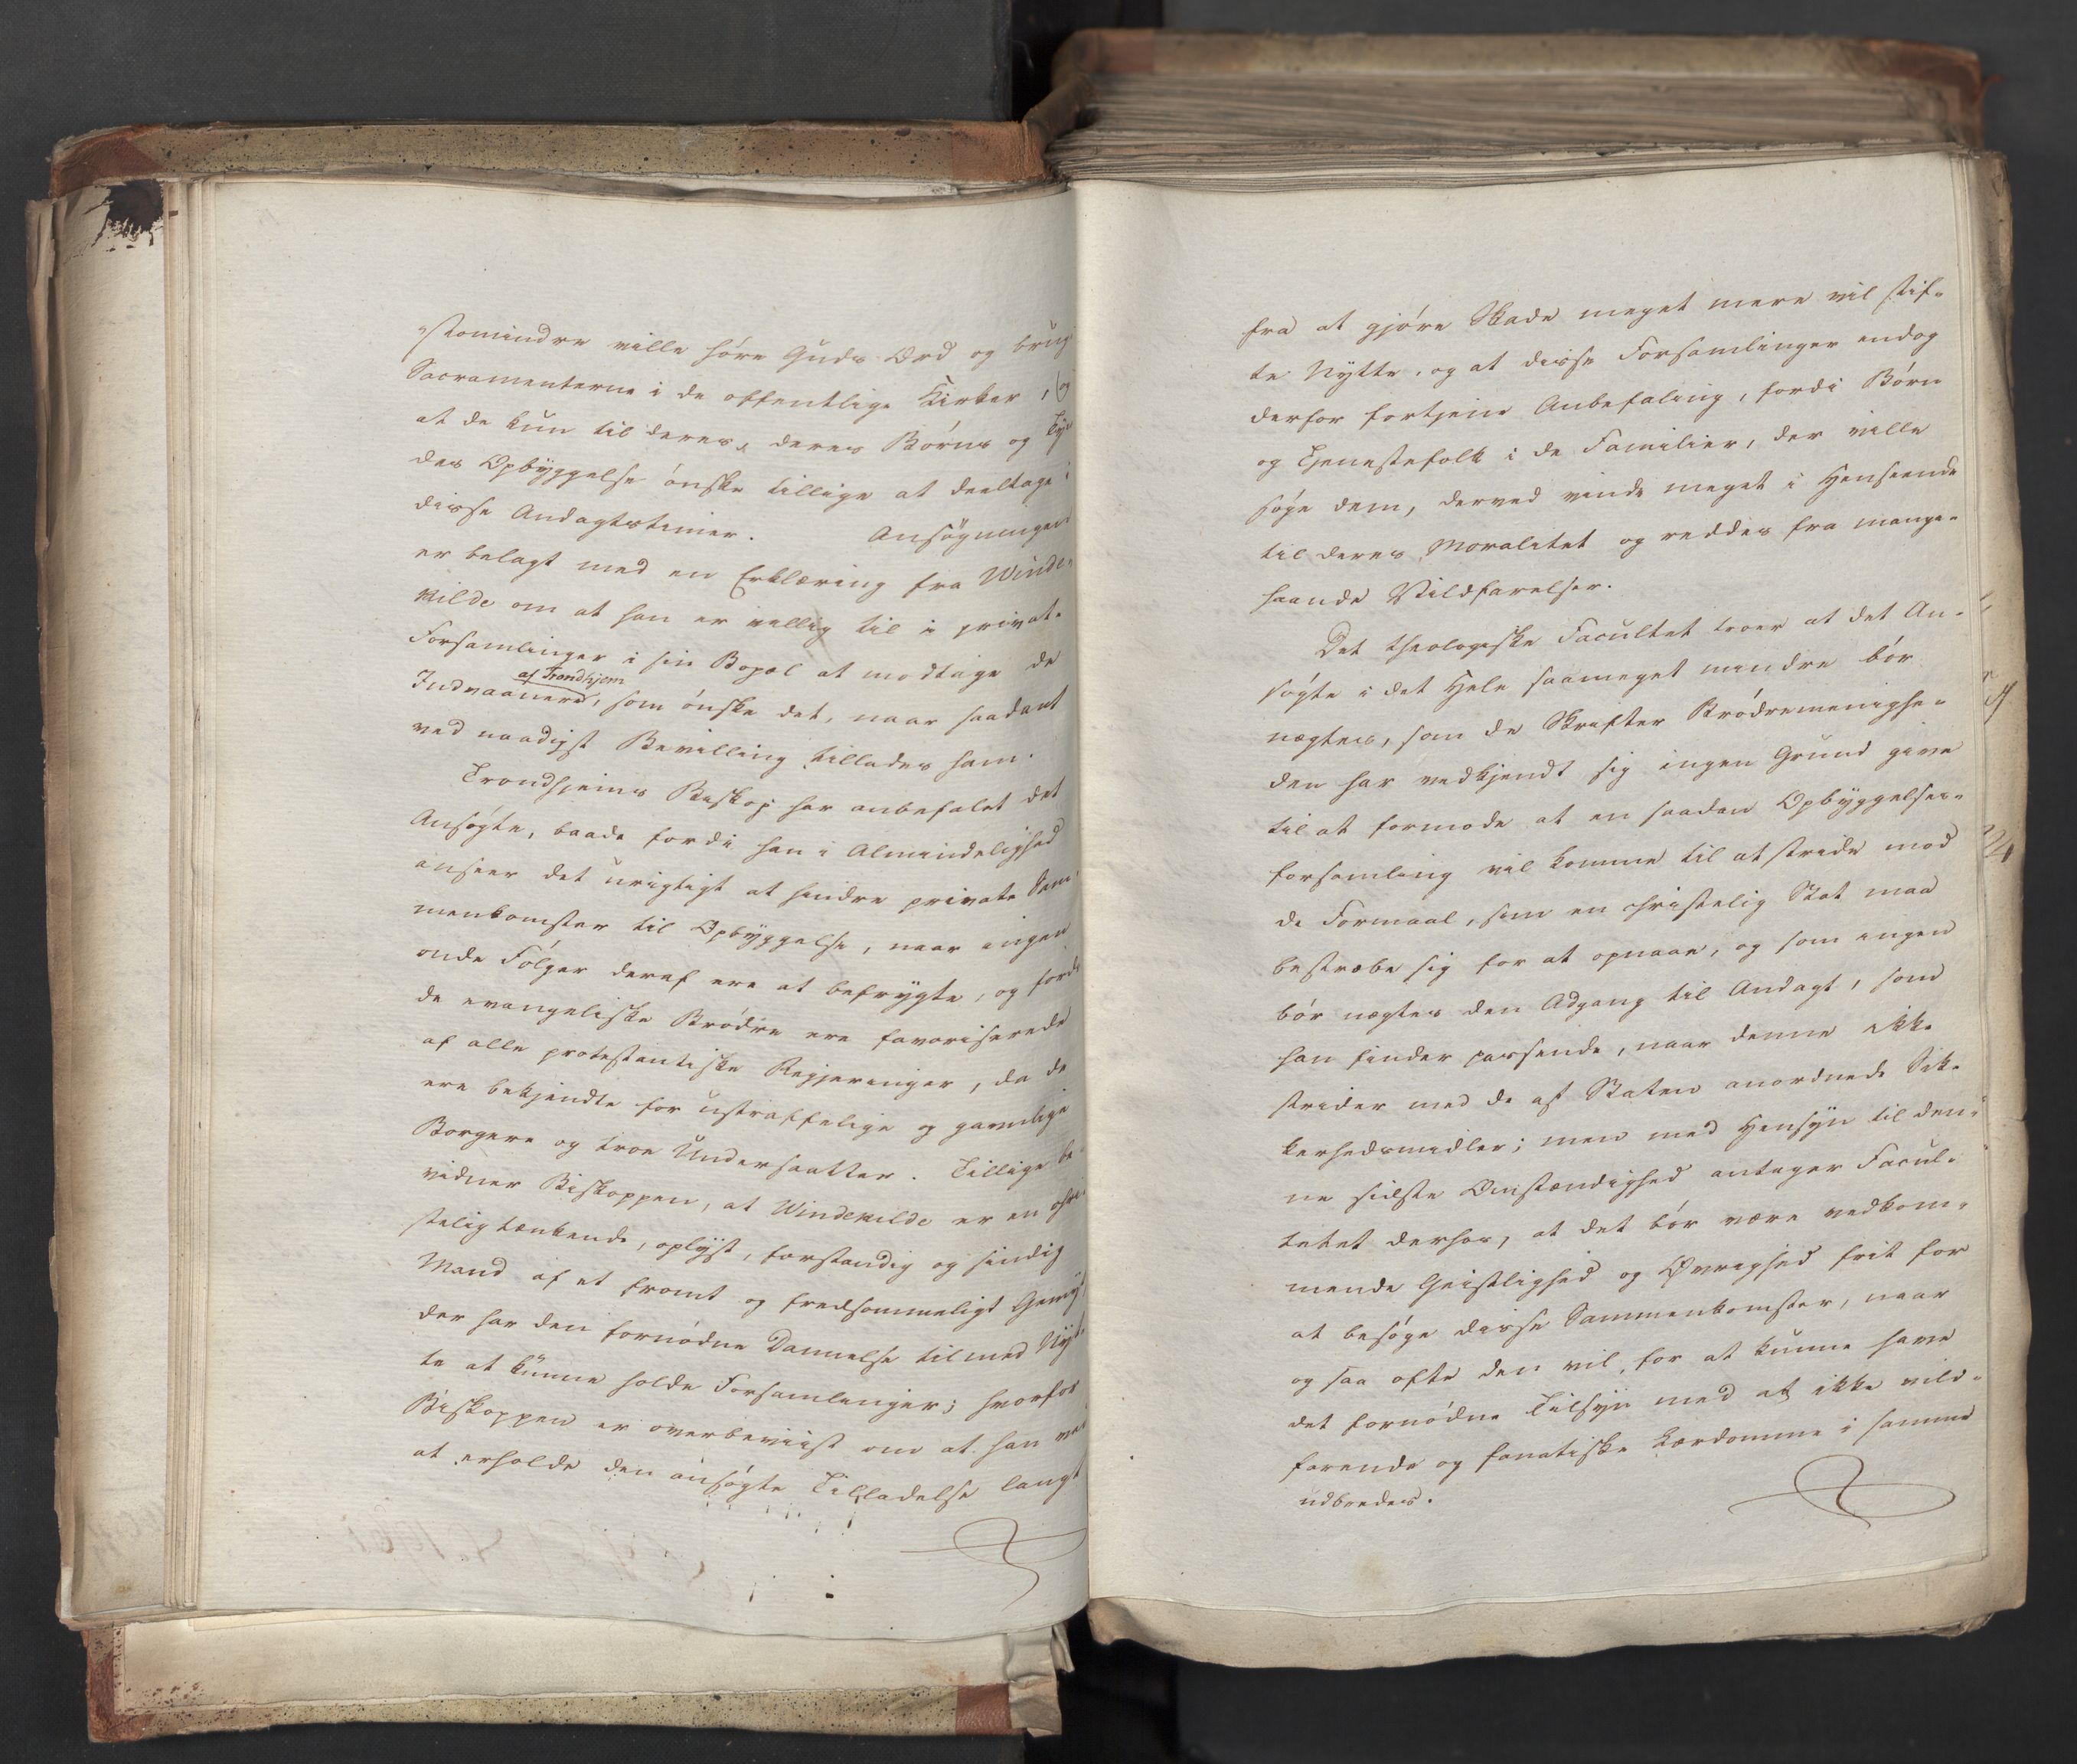 stomindre ville høre Guds Ord og brug
Sacramenterne i de offentlige Kirker, og
at de kun til deres, deres Børns og Tyen
des Opbyggelse ønske tillige at deeltage i
disse Andagtstimer. Ansøgningen
er belagt med en Erklæring fra Winde-
kilde om at han er villig til i privat-
Forsamlinger i sin Bopæl at modtage de
af Trondhjem
Indvaanere, som ønske det, naar saadant
ved naadigst Bevilling tillades ham.
Trondhjems Biskop har anbefalet det
Ansøgte, baade fordi han i Almindelighed
anseer det urigtigt at hindre private Sam-
menkomster til Opbyggelse, naar ingen
onde Følger deraf ere at befrygte, og fordi
de evangeliske Brødre ere favoriserede
af alle protestantiske Regjeringer, da de
ere bekjendte for ustraffelige og gavnlige
Borgere og troe Undersaatter. Tillige be-
vidner Biskoppen, at Windekilde er en chri-
stelig tænkende, oplyst, forstandig og sindig
Mand af et fromt og fredsommeligt Gemyt
der har den fornødne Dannelse til med Nyt-
te at kunne holde Forsamlinger; hvorfor
Biskoppen er overbeviist om at han ved
at erholde den ansøgte Tilladelse langt
fra at gjøre Skade meget mere vil stif-
te Nytte, og at disse Forsamlinger endog
derfor fortjene Anbefaling, fordi Børn
og Tjenestefolk i de Familier, der ville
søge dem, derved vinde meget i Henseende
til deres Moralitet og reddes fra mange-
haande Vildfarelser.
Det theologiske Facultet troer at det An-
søgte i det Hele saameget mindre bør
nægtes, som de Skrifter Brødremenighe-
den har vedkjendt sig ingen Grund give
til at formode at en saadan Opbyggelses-
forsamling vil komme til at stride mod
de Formaal, som en christelig Stat maa
bestræbe sig for at opnaae, og som ingen
bør nægtes den Adgang til Andagt, som
han finder passende, naar denne ikke
strider med de af Staten anordnede Sik-
kerhedsmidler; men med Hensyn til den-
ne sidste Omstændighed antager Facul-
tetet derhos, at det bør være vedkom-
mende Geistlighed og Øvrighed frit for
at besøge disse Sammenkomster, naar
og saa ofte den vil, for at kunne have
det fornødne Tilsyn med at ikke vild-
farende og fanatiske Lærdomme i samme
udbredes.